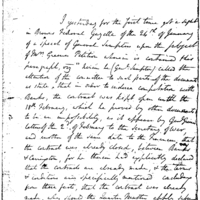 I yesterday for the first time got a sight
in Browns Federal Gazette of the 24th of January
of a speech of General Sumpters upon the subject
of Mrs Greens Petition wherein is contained this
paragraph, "herein he (Genl Sumpter) called the
attention of the committee to such parts of the documents
as state, that in order to induce competition with
Banks, the contract was kept open until the
18th February, which he proved by other documents
to be an impossibility, as it appears by Genl Greens
letter of the 2d of February to the Secretary of war,
and another of the same date to the financier, that
the contract was already closed, between Banks
& Carrington, for he therein had explicitly declared
that the contracts are already made, & the terms
& rations are specifically mentioned
for three posts, that the contract was already
made, why should the Quarter Master